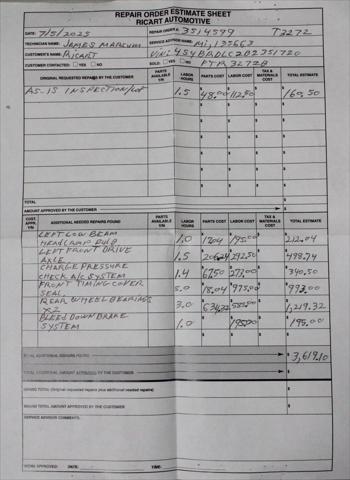 REPAIR ORDER ESTIMATE SHEET
RICART AUTOMOTIVE
DATE: 7/5/2025 REPAIR ORDER #: 3514599 T2272
TECHNICIAN NAME: JAMES MARCUM SERVICE ADVISOR NAME: Mi, 135663
CUSTOMER'S NAME: Ricart Vin: 4S4BRDLC2B2351720
CUSTOMER CONTACTED: YES NO SOLD: YES NO PTR32728
ORIGINAL REQUESTED REPAIRS BY THE CUSTOMER PARTS AVAILABLE Y/N LABOR HOURS PARTS COST LABOR COST TAX & MATERIALS COST TOTAL ESTIMATE
AS-IS INSPECTION/LOF 1.5 $48.00 $112.50 $ $160.50
TOTAL
AMOUNT APPROVED BY THE CUSTOMER $
CUST. APPR. Y/N ADDITIONAL NEEDED REPAIRS FOUND PARTS AVAILABLE Y/N LABOR HOURS PARTS COST LABOR COST TAX & MATERIALS COST TOTAL ESTIMATE
LEFT LOW BEAM
HEADLAMP BULB 1.0 $17.04 $195.00 $ $212.04
LEFT FRONT DRIVE
AXLE 1.5 $206.24 $292.50 $ $498.74
CHARGE PRESSURE
CHECK A/C SYSTEM 1.4 $67.50 $273.00 $ $340.50
FRONT TIMING COVER
SEAL 5.0 $18.04 $975.00 $ $993.00
REAR WHEEL BEARINGS
X2 3.0 $634.32 $585.00 $ $1,219.32
BLEED DOWN BRAKE
SYSTEM 1.0 $ $195.00 $ $195.00
TOTAL ADDITIONAL REPAIRS FOUND $3,619.10
TOTAL ADDITIONAL AMOUNT APPROVED BY THE CUSTOMER $
GRAND TOTAL (Original requested repairs plus additional needed repairs) $
GRAND TOTAL AMOUNT APPROVED BY THE CUSTOMER $
SERVICE ADVISOR COMMENTS:
TOTAL APPROVED: DATE: TIME: